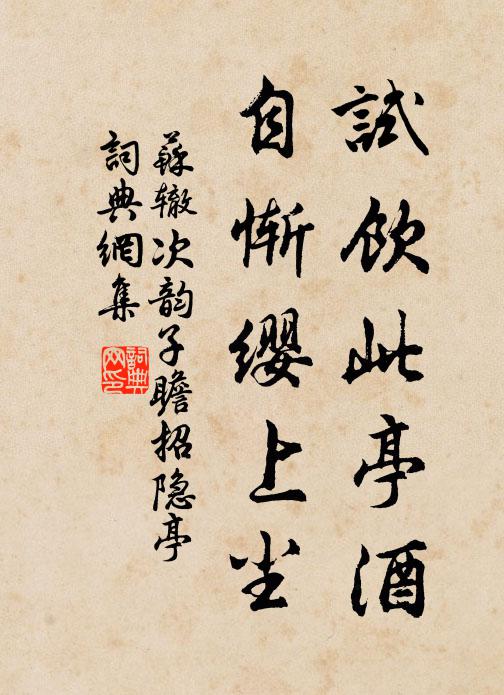 試飲此亭酒
自慚纓上尘
蘇辙次韵子瞻招隐亭
詞典網集
詞典网印